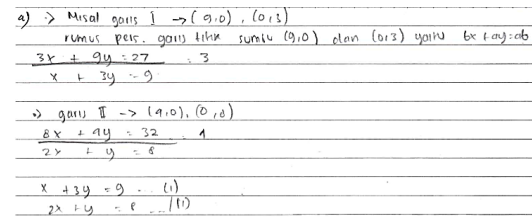 a) :> Misal garis I -> (9,0), (0,3)
rumus pers. garis titik sumbu (9,0) dan (0,3) yaitu bx + ay = ab
3x + 9y = 27 : 3
x + 3y = 9
•> garis II -> (4,0), (0,8)
8x + 4y = 32 : 4
2x + y = 8
x + 3y = 9 ... (1)
2x + y = 8 ... (11)